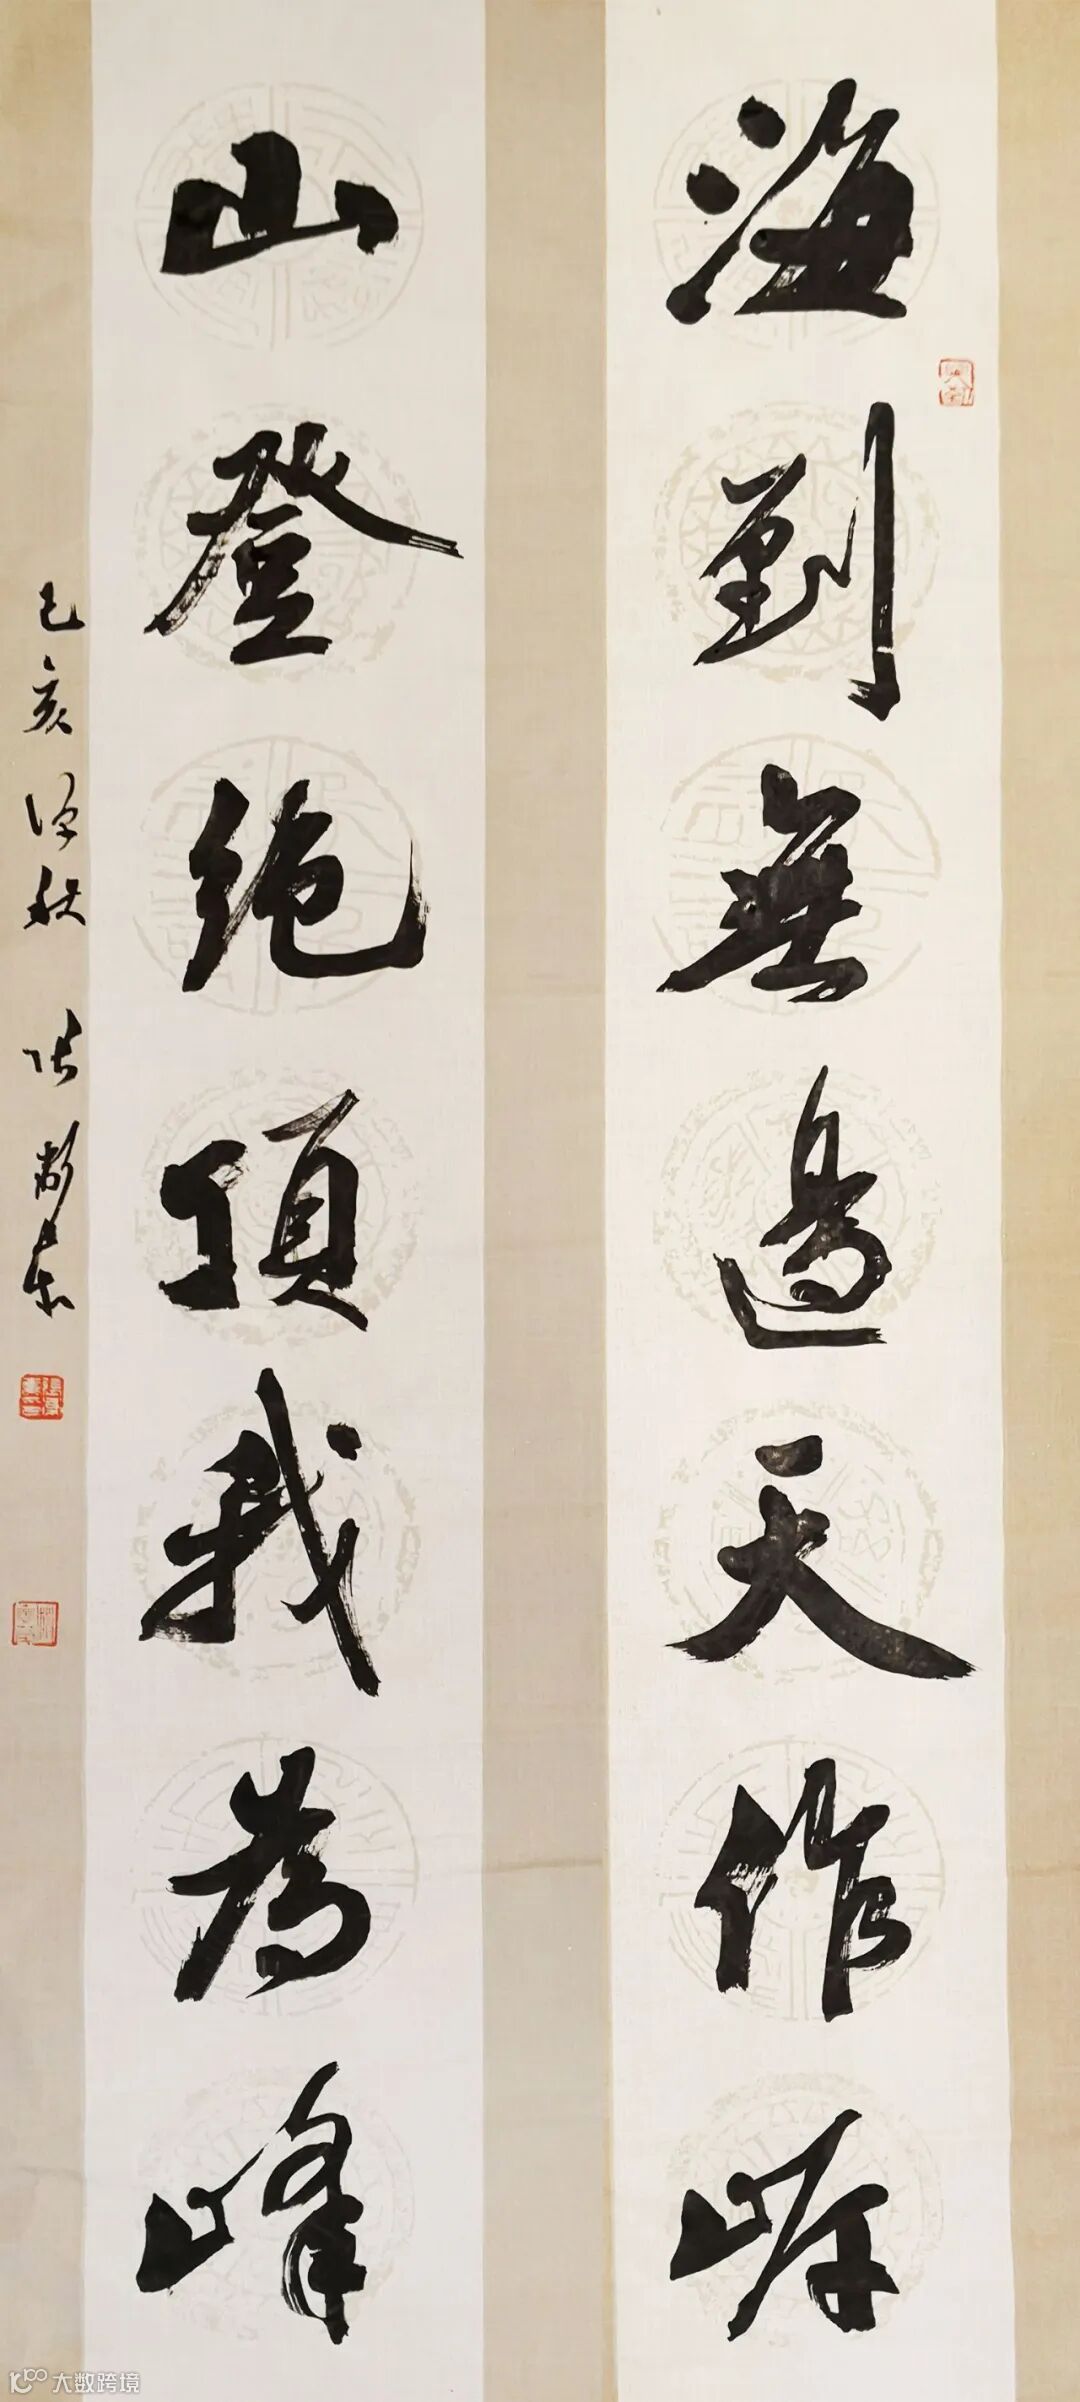 海到無邊天作岸
山登絕頂我為峰
己亥深秋
大数跨境